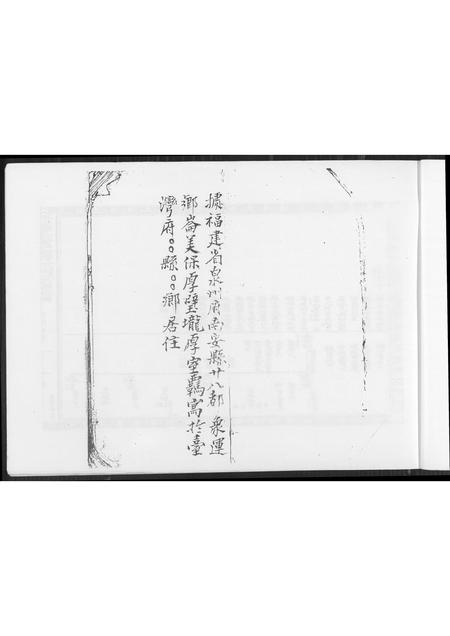 據福建省泉州府南安縣廿八都 衆運
鄉崙美保厚壁壠厚室鷄寓於臺
灣府○○縣○○鄉居住